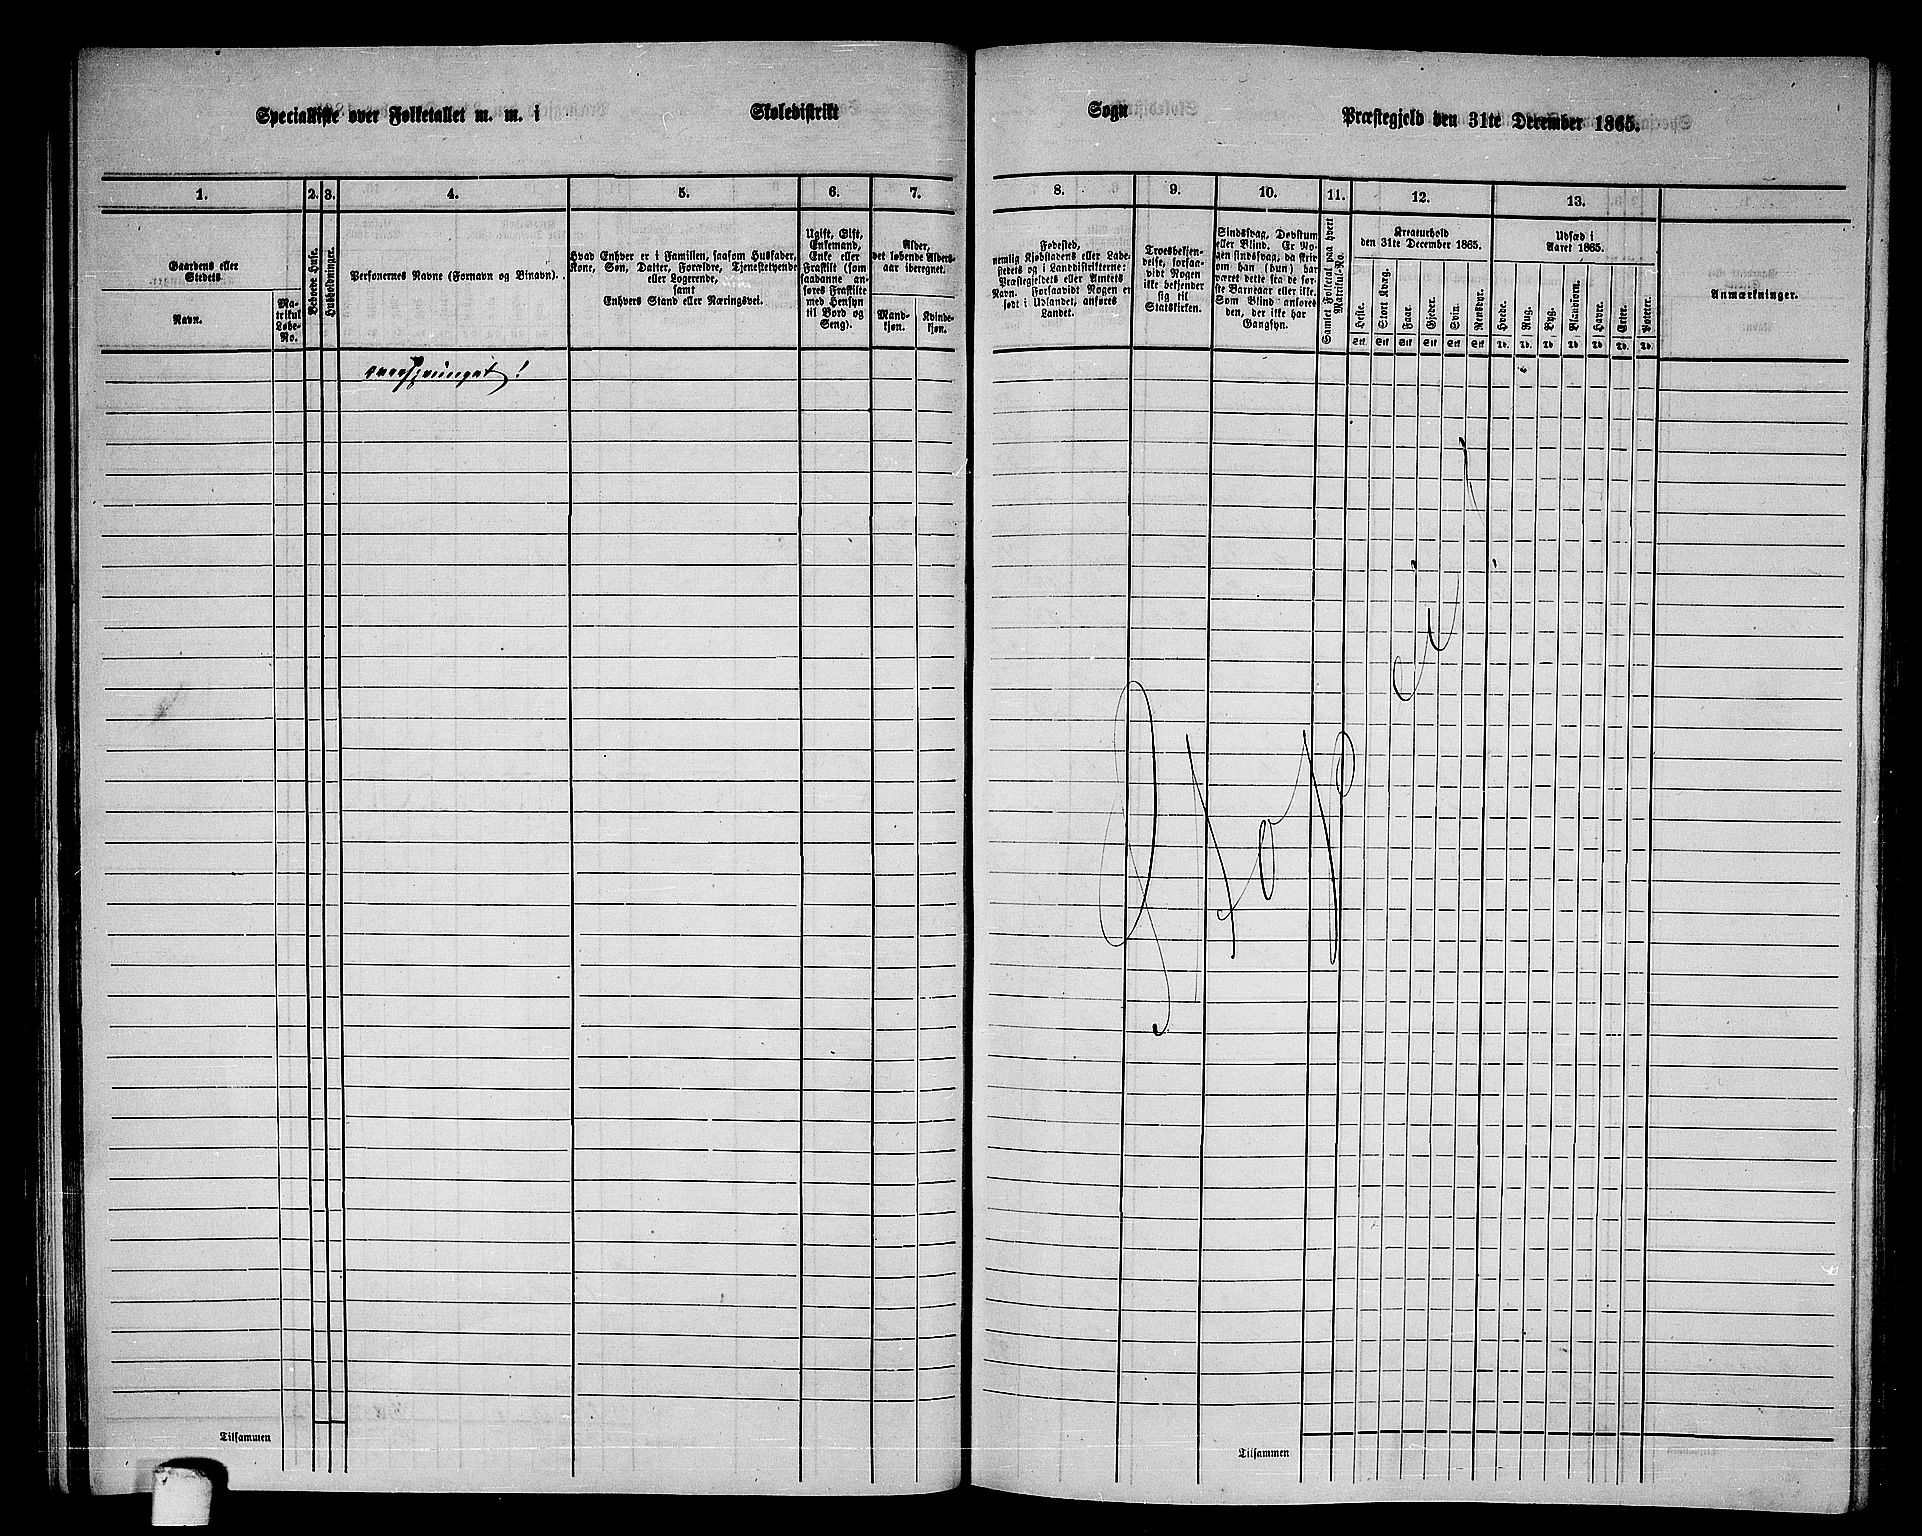 Specialliste over Folketallet m. m. i Skoledistrikt Sogn Præstegjeld den 31te December 1865.
1. 2. 3. 4. 5. 6. 7. 8. 9. 10. 11. 12. 13.
Gaardens eller Stedets
Navn.
Matrikul Løbe-No.
Beboede Huse.
Husholdninger.
Personernes Navne (Fornavn og Binavn).
Hvad Enhver er i Familien, saasom Husfader,
Kone, Søn, Datter, Forældre, Tjenestetyende
eller Logerende,
samt
Enhvers Stand eller Næringsvei.
Ugift, Gift,
Enkemand,
Enke eller
Fraskilt (som
saadanne an-
føres Fraskilte
med Hensyn
til Bord og
Seng).
Alder,
det løbende Alders-
aar iberegnet.
Mand-
kjøn.
Kvinde-
kjøn.
Fødested,
nemlig Kjøbstadens eller Lade-
stedets og i Landdistrikterne:
Præstegjeldets eller Amtets
Navn. Forsaavidt Nogen er
født i Udlandet, anføres
Landet.
Troesbekjen-
delse, forsaa-
vidt Nogen
ikke bekjender
sig til
Statskirken.
Sindssvag, Døvstum
eller Blind. Er No-
gen sindssvag, da skriv
om han (hun) har
været dette fra de før-
ste Barneaar eller ikke.
Som Blind anføres
den, der ikke har
Gangsyn.
Samlet Folketal paa hvert
Matrikul-No.
Kreaturhold
den 31te December 1865.
Heste. Stort Kvæg. Faar. Gjeder. Sviin. Rensdyr.
Stk. Stk. Stk. Stk. Stk. Stk.
Udsæd i
Aaret 1865.
Hvede. Rug. Byg. Blandkorn. Havre. Erter. Poteter.
Td. Td. Td. Td. Td. Td. Td.
Anmærkninger.
oversprunget!
Tilsammen
Tilsammen